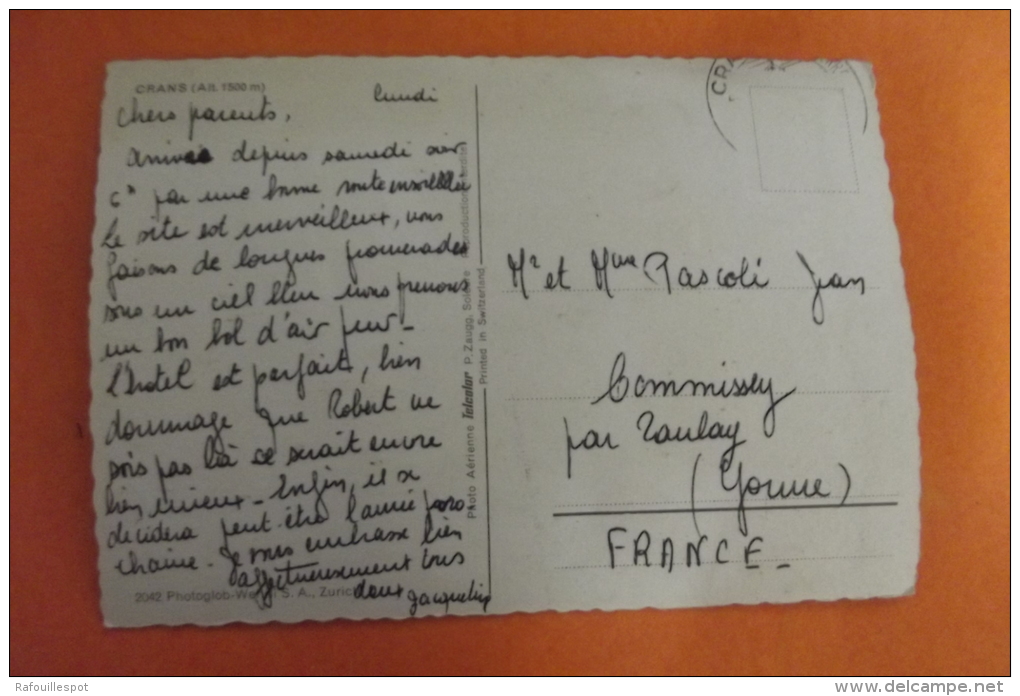 CRANS (Alt. 1500 m)
lundi
chers parents,
arrivée depuis samedi soir
par une bonne route ensoleillée
Le site est merveilleux, nous
faisons de longues promenades
sous un ciel bleu nous prenons
un bon bol d'air pur _
l'hotel est parfait, bien
dommage que Robert ne
sois pas là ce serait encore
bien mieux _ Enfin, il se
decidera peut-être l'année pro
chaine. Je vous embrasse bien
affectueusement tous
deux Jacqueline
2042 Photoglob-We S. A., Zuric
Photo Aérienne Telcolor P. Zaugg, Soleure Reproduction interdite
Printed in Switzerland
CR
Mr et Mme Pascoli Jean
Commissey
par Tanlay
(Yonne)
FRANCE_
Rafouillespot
www.delcampe.net